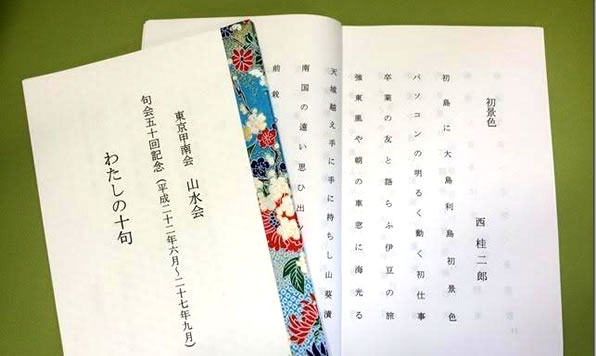 東京甲南会　山水会
句会五十回記念（平成二十二年六月～二十七年九月）
わたしの十句
初景色
西　桂二郎
初島に大島利島初景色
パソコンの明るく動く初仕事
卒業の友と語らふ伊豆の旅
強東風や朝の車窓に海光る
天城越え手に手に持ちし山葵漬
南国の遠い思ひ出
前